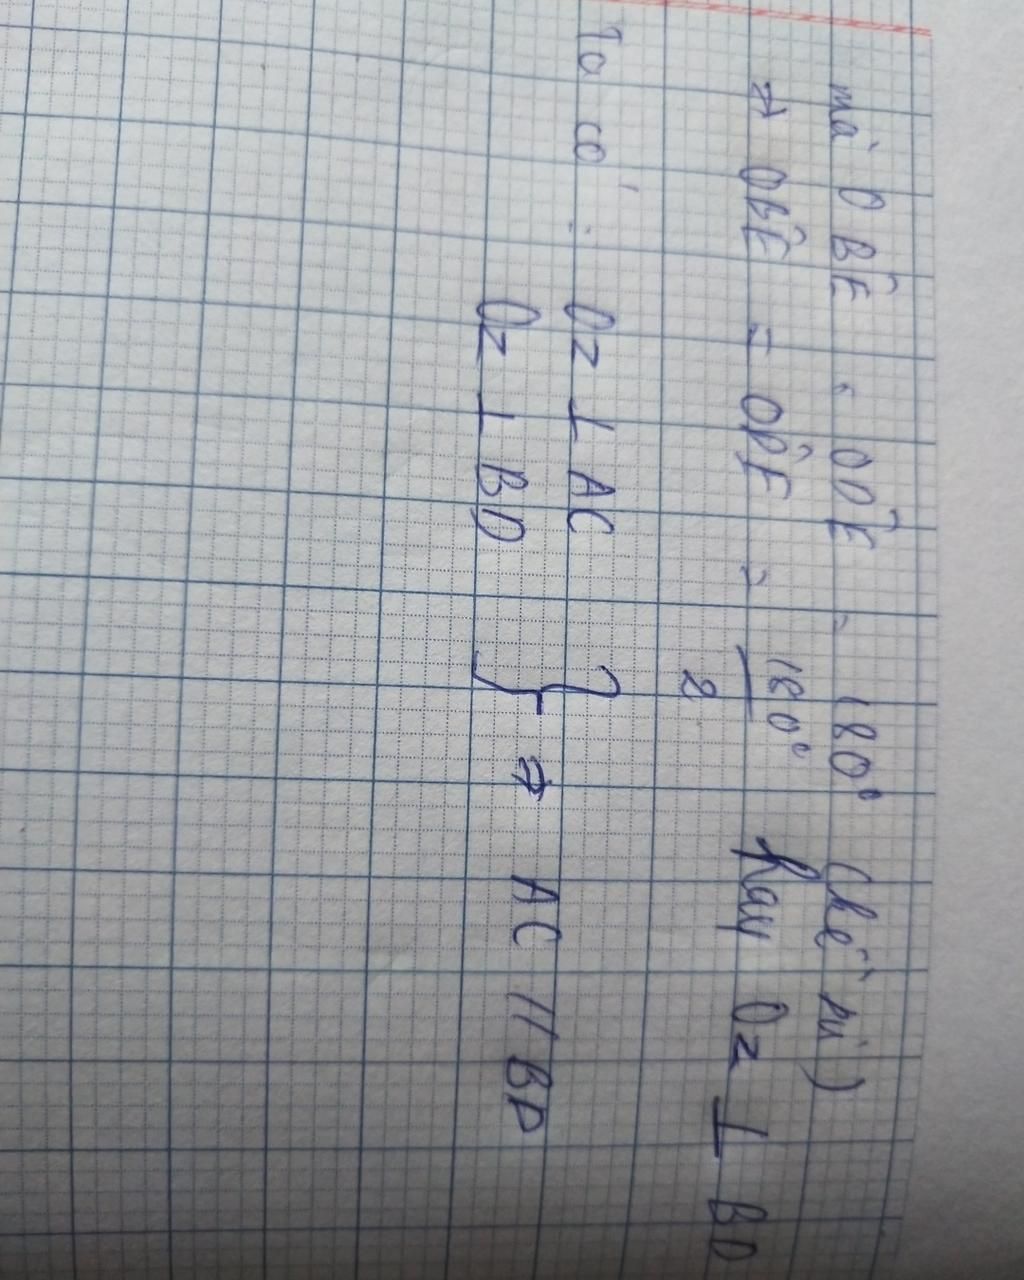 mà OBÊ + ODÊ = 180° (kề bù)
⇒ OBÊ = ODÊ = 180°/2 hay Oz ⊥ BD
Ta có: Oz ⊥ AC
Oz ⊥ BD } ⇒ AC // BD